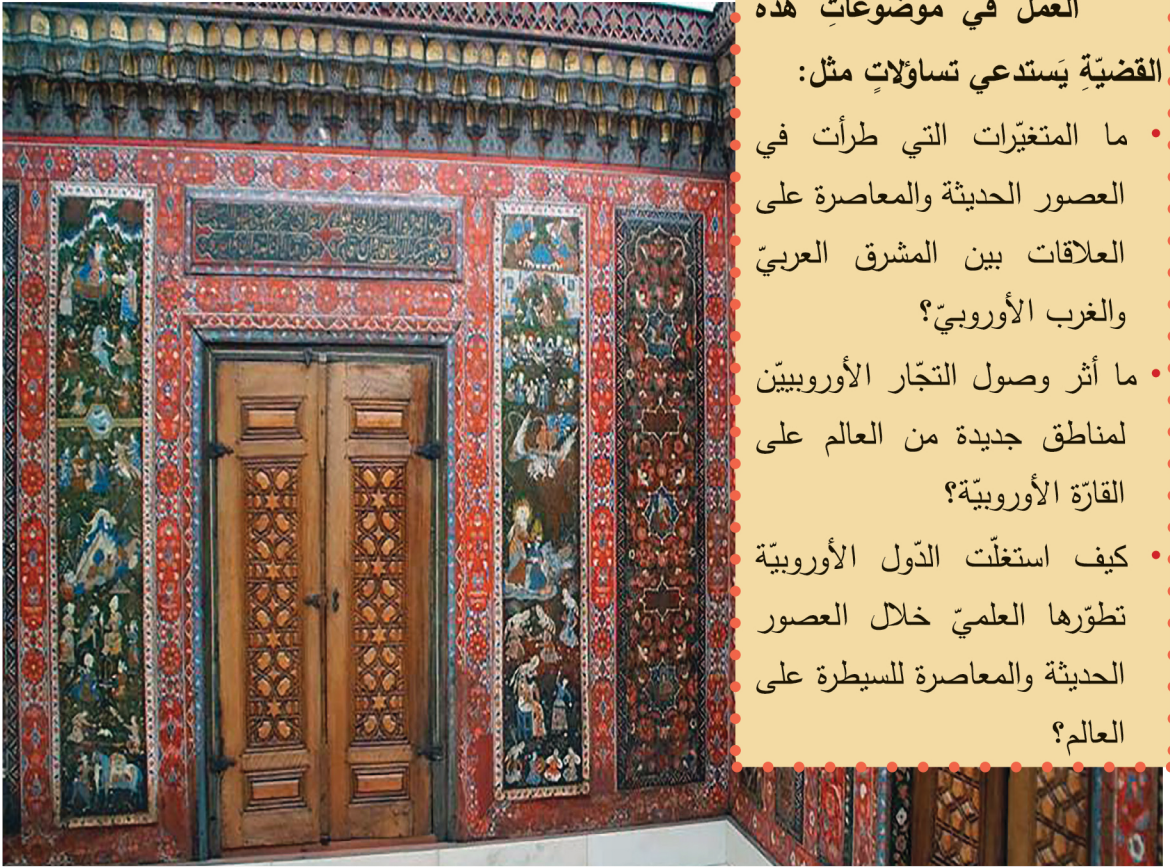 العمل في موضوعاتِ هذه
القضيّةِ يَستدعي تساؤلاتٍ مثل:
• ما المتغيّرات التي طرأت في
العصور الحديثة والمعاصرة على
العلاقات بين المشرق العربيّ
والغرب الأوروبيّ؟
• ما أثر وصول التجّار الأوروبييّن
لمناطق جديدة من العالم على
القارّة الأوروبيّة؟
• كيف استغلّت الدّول الأوروبيّة
تطوّرها العلميّ خلال العصور
الحديثة والمعاصرة للسيطرة على
العالم؟